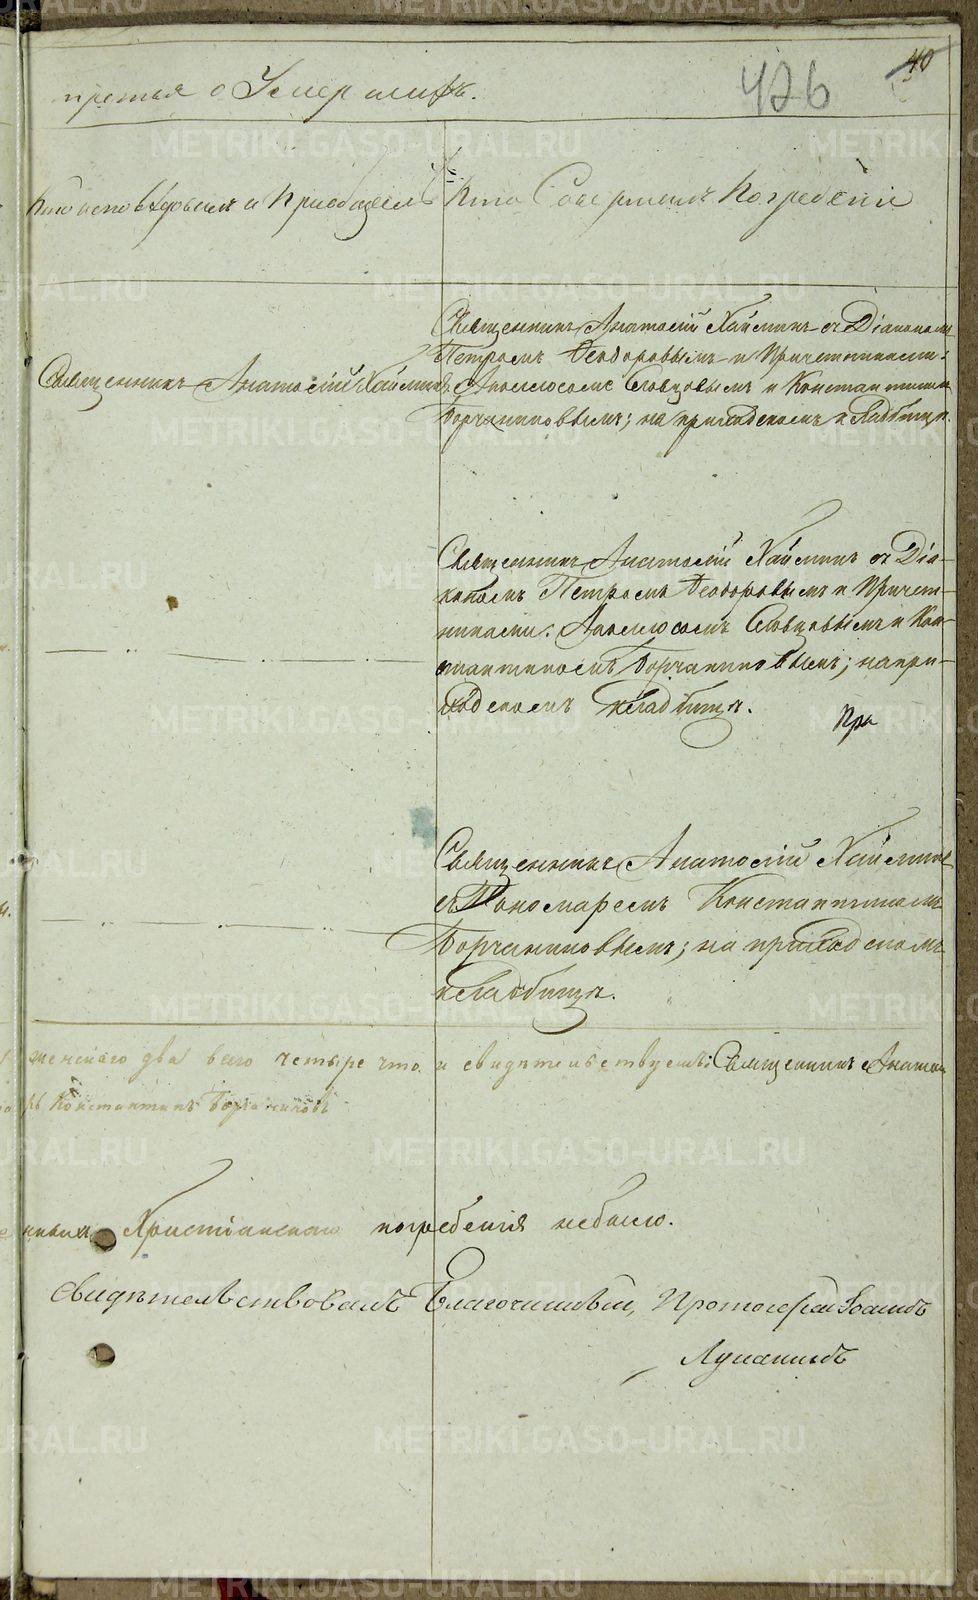 третья о Умершихъ.
426
40
Кто исповѣдовалъ и Приобщалъ
Кто Совершилъ Погребеніе
Священникъ Анатолій Хаймин
Священникъ Анатолій Хайминъ съ Діакономъ
Петромъ Ѳеодоровымъ и Причетниками:
Словцовымъ и Константином
Борчаниновымъ; на приходскомъ кладбищѣ.
Священникъ Анатолій Хайминъ съ Діа-
кономъ Петромъ Ѳеодоровымъ и Причет-
никами: Словцовымъ и Кон-
стантиномъ Борчаниновымъ; на при-
ходскомъ кладбищѣ.
При
Священникъ Анатолій Хайминъ
съ Пономаремъ Константиномъ
Борчаниновымъ; на приходскомъ
кладбищѣ.
женскаго два всего четыре что и свидѣтельствуемъ: Священникъ Анатол
рь Константинъ Борчаниновъ
Христіанскаго погребенія небыло.
Свидѣтельствовалъ Благочинный, Протоіерей Іоаннъ
Луканинъ
METRIKI.GASO-URAL.RU